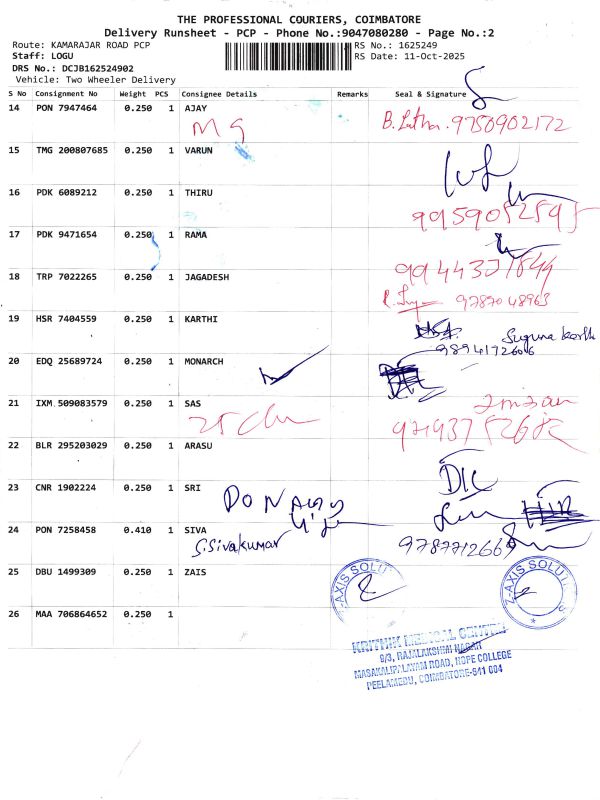 THE PROFESSIONAL COURIERS, COIMBATORE
Delivery Runsheet - PCP - Phone No.:9047080280 - Page No.:2
Route: KAMARAJAR ROAD PCP RS No.: 1625249
Staff: LOGU RS Date: 11-Oct-2025
DRS No.: DCJB162524902
Vehicle: Two Wheeler Delivery
S No Consignment No Weight PCS Consignee Details Remarks Seal & Signature
14 PON 7947464 0.250 1 AJAY
B.Latha. 9750902172
15 TMG 200807685 0.250 1 VARUN
16 PDK 6089212 0.250 1 THIRU
17 PDK 9471654 0.250 1 RAMA
18 TRP 7022265 0.250 1 JAGADESH
9787048963
19 HSR 7404559 0.250 1 KARTHI
20 EDQ 25689724 0.250 1 MONARCH
21 IXM 509083579 0.250 1 SAS
22 BLR 295203029 0.250 1 ARASU
23 CNR 1902224 0.250 1 SRI
24 PON 7258458 0.410 1 SIVA
S.Sivakumar 9787712669
25 DBU 1499309 0.250 1 ZAIS
Z-AXIS SOLUTI
Z-AXIS SOLUTI
26 MAA 706864652 0.250 1
KRITHIK MEDICAL CENTRE
9/3, RAJALAKSHMI NAGAR
MASAKALIPALAYAM ROAD, HOPE COLLEGE
PEELAMEDU, COIMBATORE-641 004